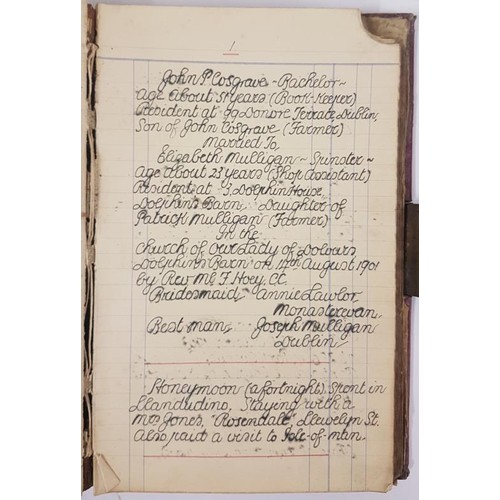 1
John P. Cosgrave ~ Bachelor ~
age about years (Book-Keeper)
Resident at Donore Terrace Dublin,
Son of John Cosgrave (Farmer)
Married To,
Elizabeth Mulligan ~ Spinster ~
age about 23 years (Shop Assistant)
Resident at 3 Dolphin House
Dolphins Barn Daughter of
Patrick Mulligan (Farmer)
In the
Church of Our Lady of Dolours
Dolphins Barn on August 1901
by Revd Ml. F. Hoey, Ct.
Bridesmaid Annie Lawlor
Monasterevan
Best man, Joseph Mulligan
Dublin
Honeymoon (a fortnight) spent in
Llandudino, Staying with a
Mrs Jones, "Rosendale", Llewelyn St.
also paid a visit to Isle-of-man.